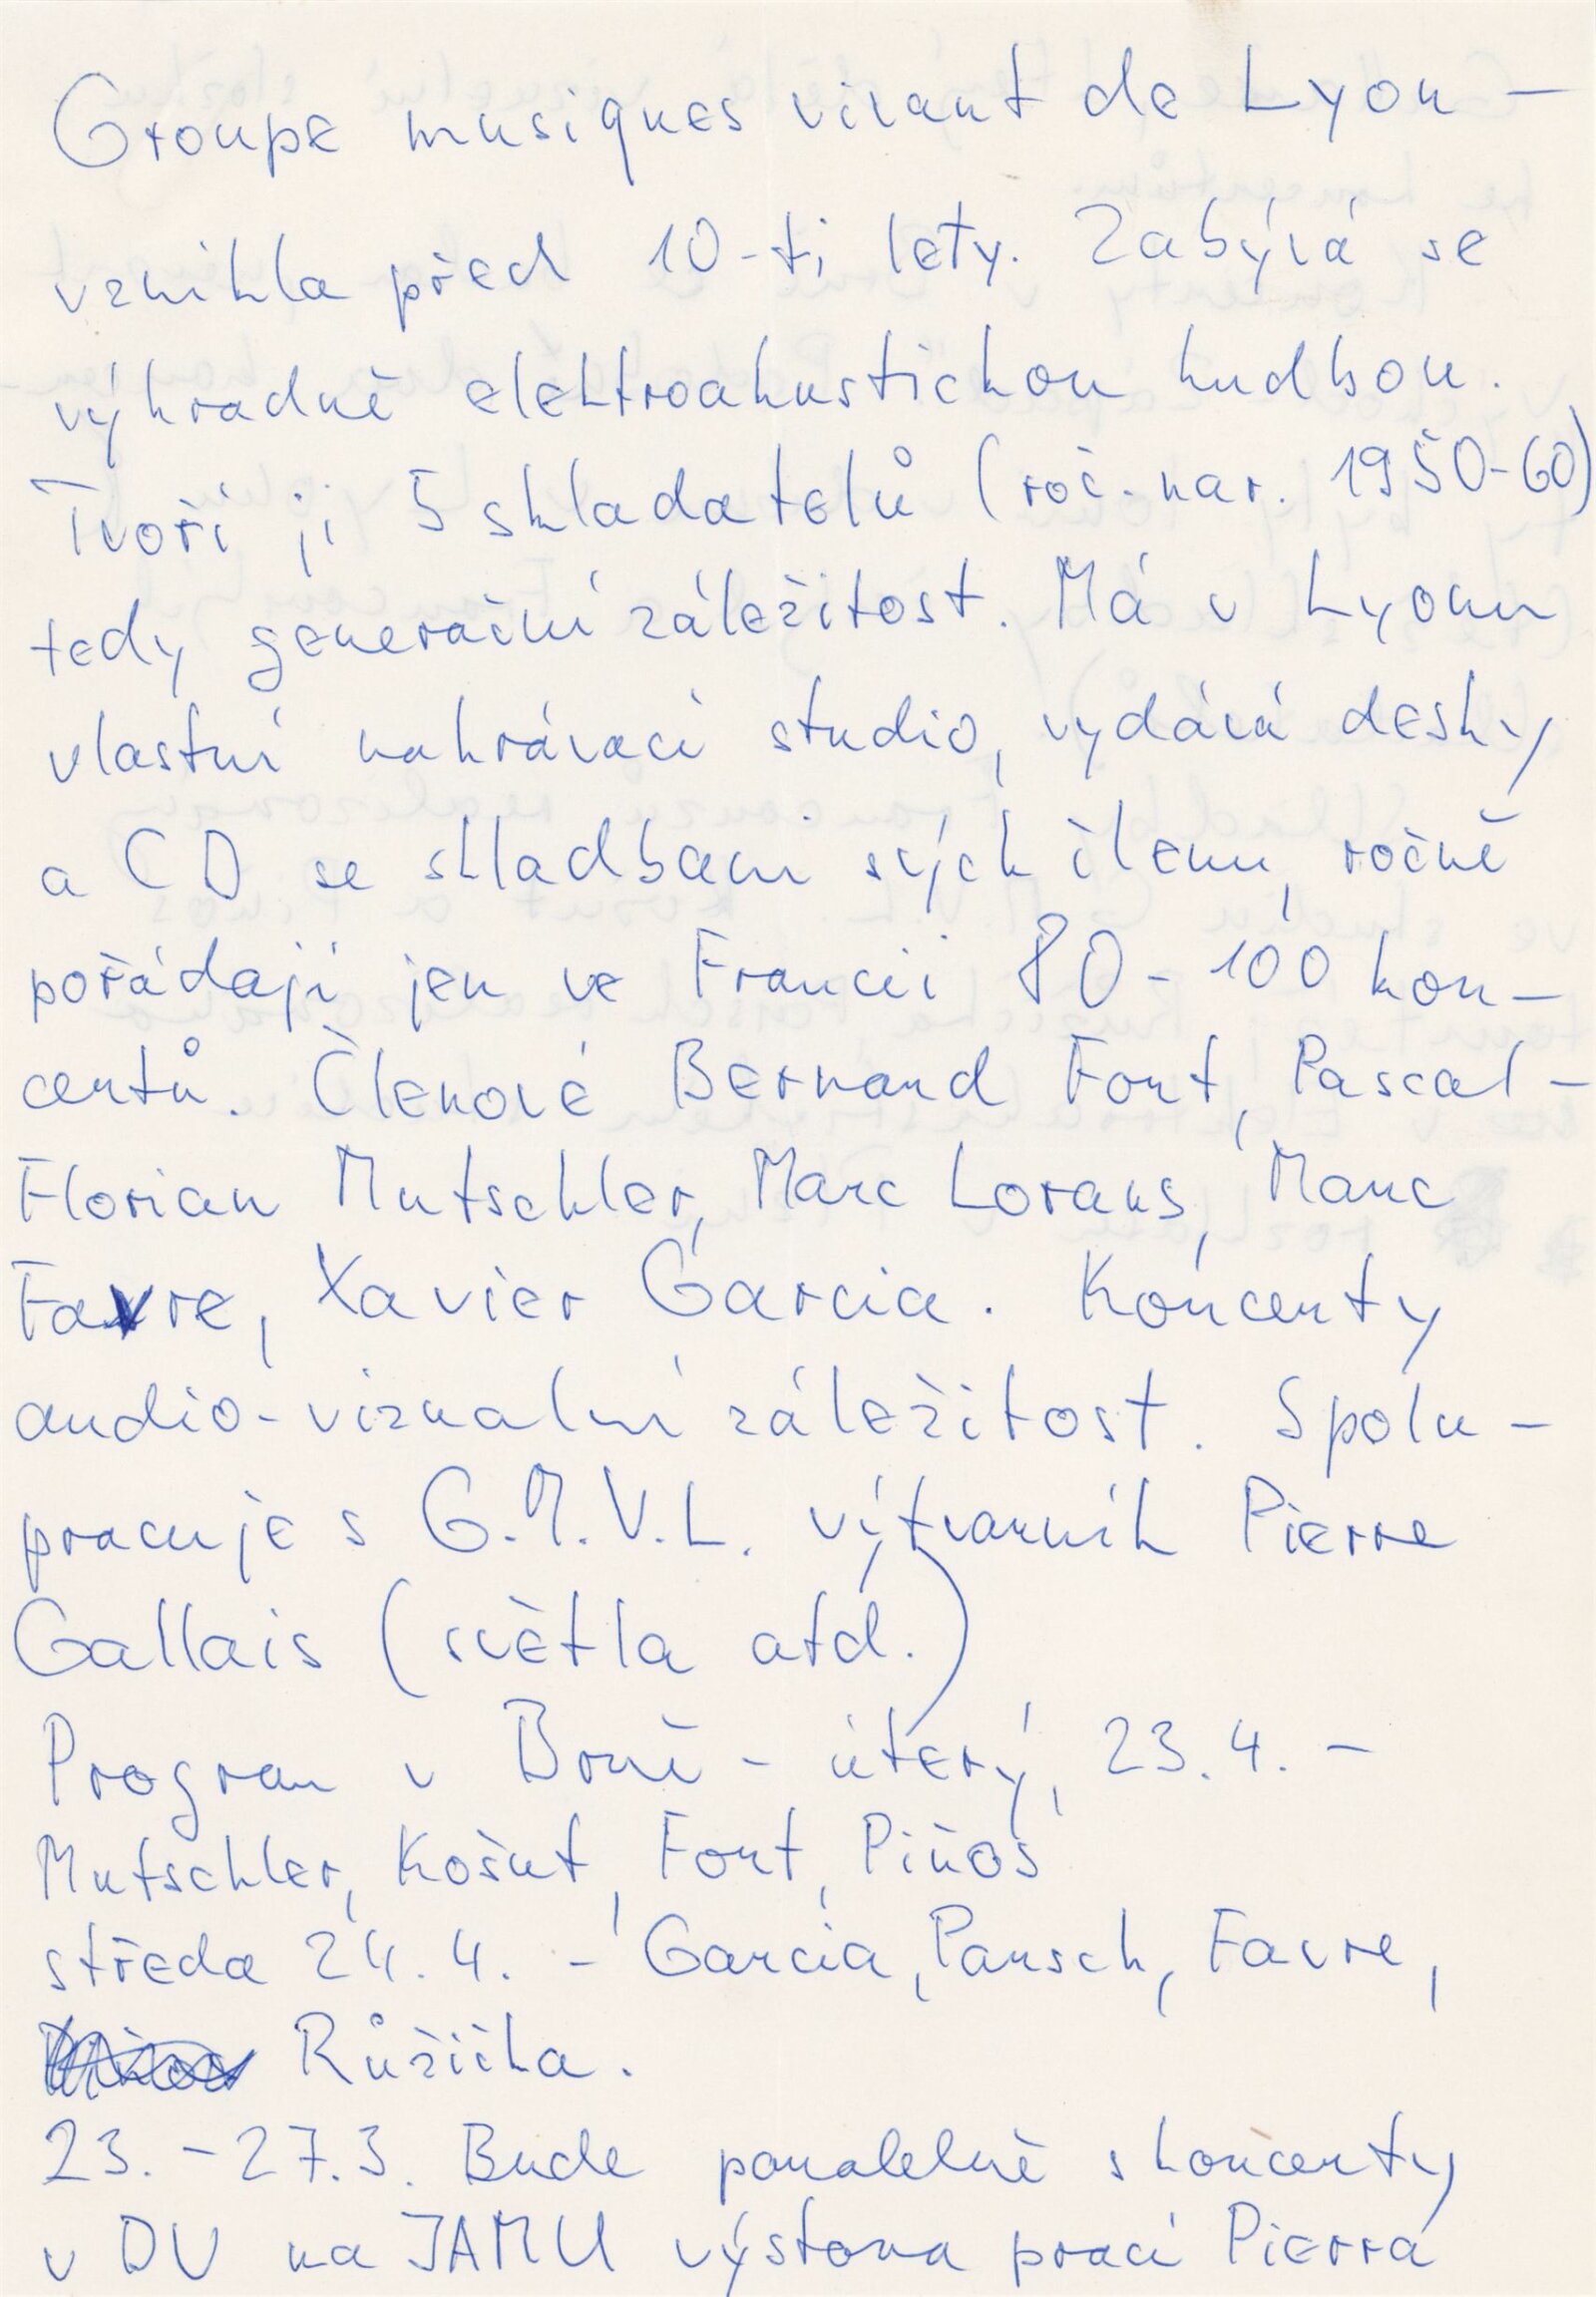 Groupe musiques vivant de Lyon –
vznikla před 10-ti lety. Zabývá se
výhradně elektroakustickou hudbou.
Tvoří ji 5 skladatelů (roč. nar. 1950-60)
tedy generační záležitost. Má v Lyonu
vlastní nahrávací studio, vydává desky
a CD se skladbami svých členu, ročně
pořádají jen ve Francii 80 - 100 kon-
certů. Členové Bernard Fort, Pascal-
Florian Mutschler, Marc Lorans, Marc
Favre, Xavier Garcia. Koncerty
audio-vizualní záležitost. Spolu-
pracuje s G.M.V.L. výtvarník Pierre
Gallais (světla atd.)
Program v Brně - úterý, 23.4. –
Mutschler, Košut, Fort, Piňos
středa 24.4. - Garcia, Parsch, Favre,
Růžička.
23. – 27.3. Bude paralelně s koncerty
v DU na JAMU výstava prací Pierra